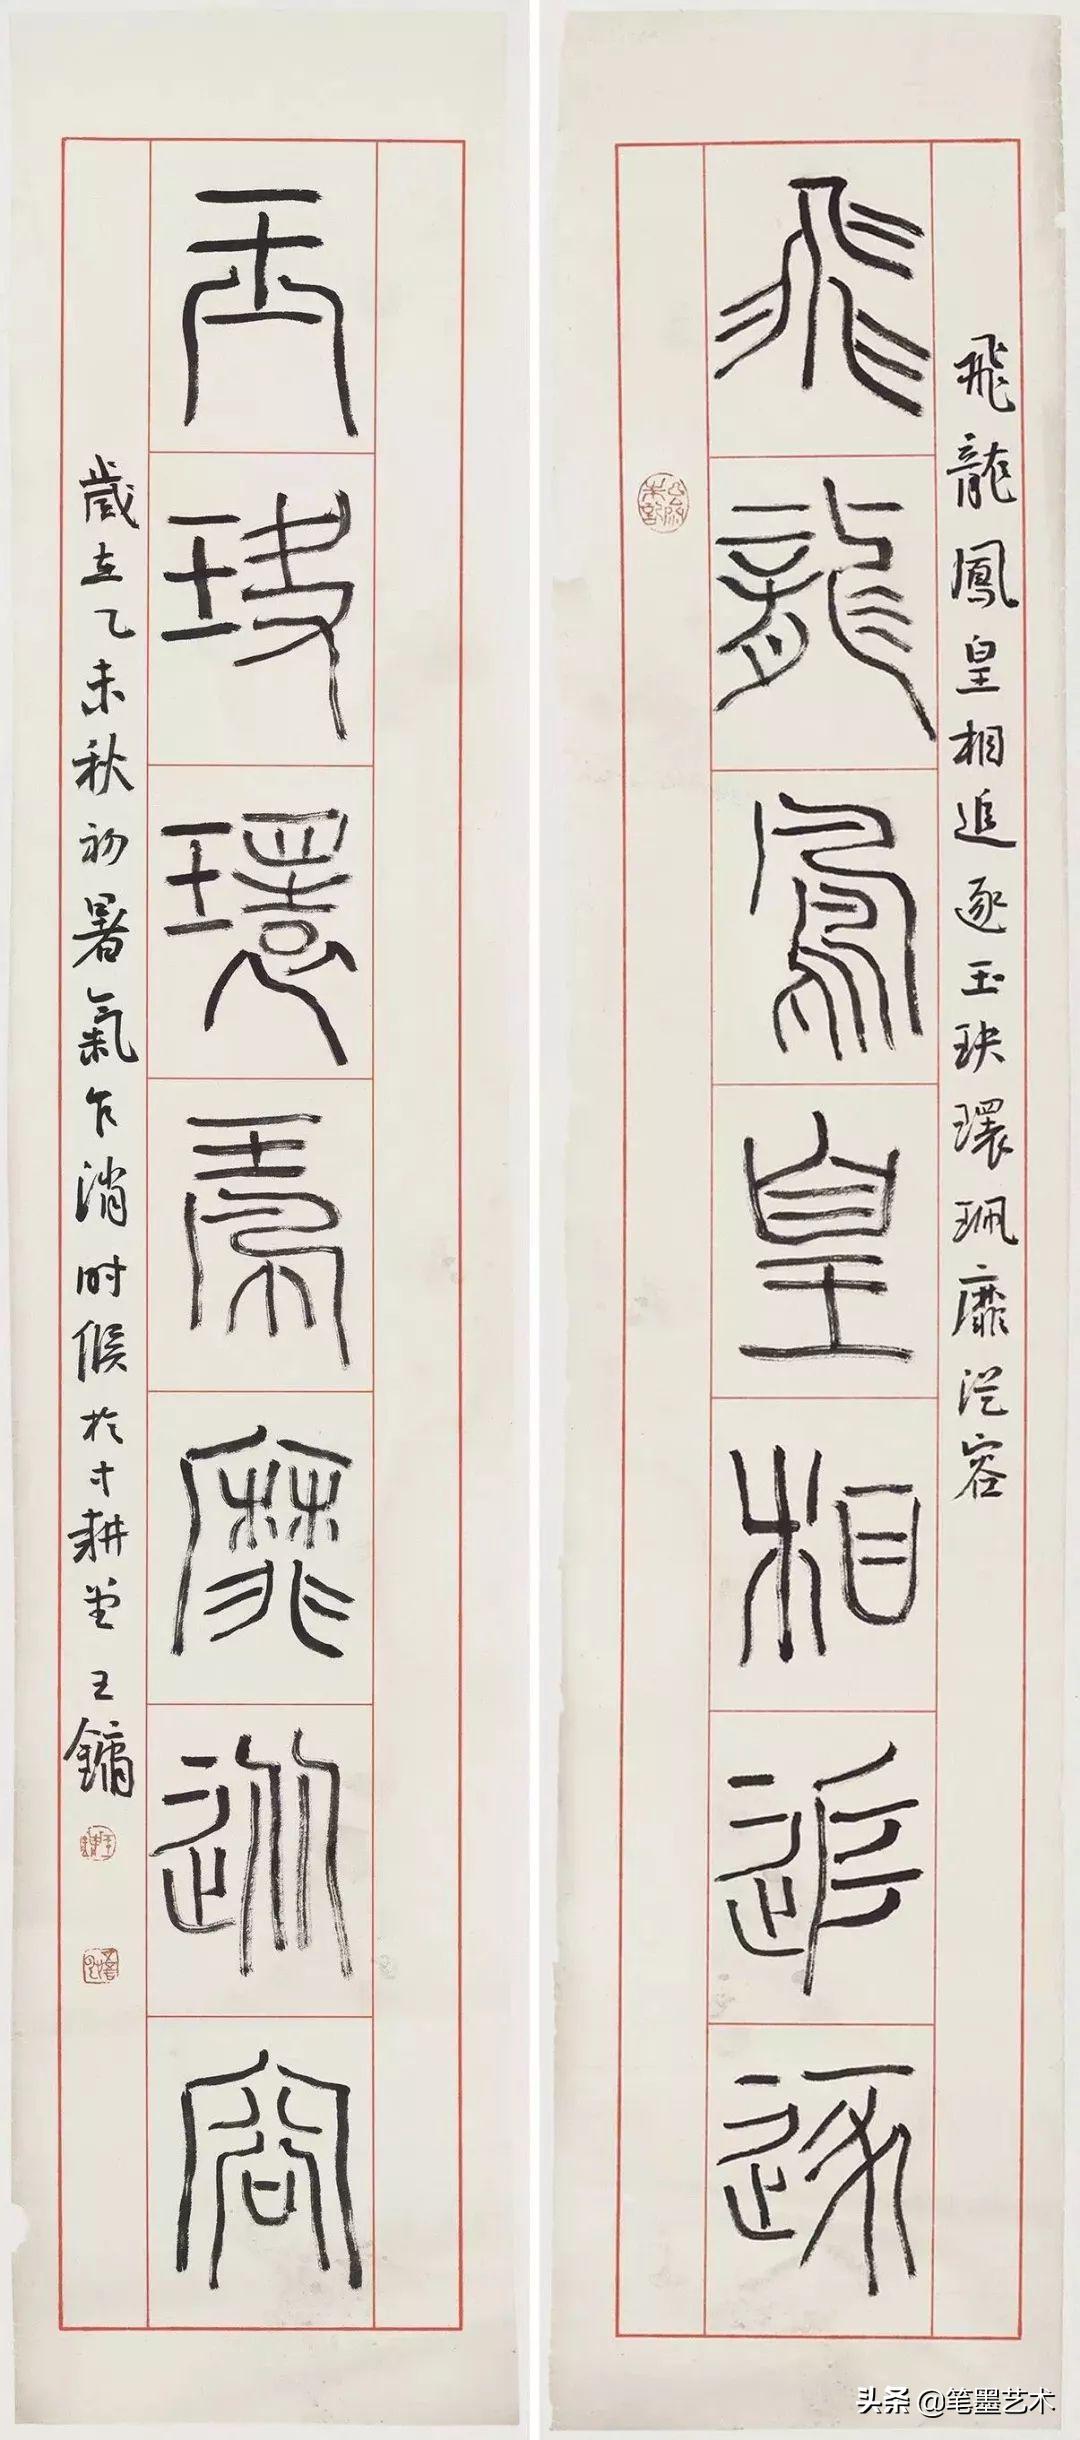 飛龍鳳皇相追逐玉玦環珮靡從容
飛龍鳳皇相追逐
玉玦環珮靡從容
歲在乙未秋初暑氣乍消時候於寸耕堂王鏞
头条 @笔墨艺术